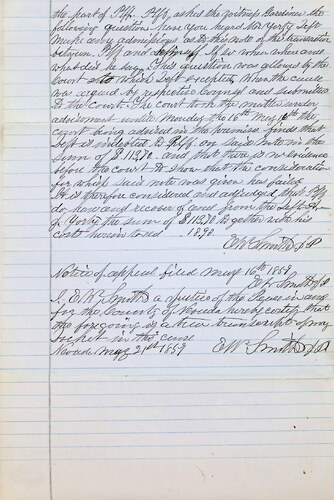 the part of Plff. Plff. asks the witness Gardiner the
following question have you heard Mr Yorty Deft
make any admissions as to the note of the transaction
between Plff and If so when where and
what did he say. This question was allowed by the
Court to which Deft excepted, when the cause
was argued by respective Counsel and submitted
to the Court. The court took the matter under
advisement until Monday the 16th May, 
court being advised in the premises finds that
Deft is indebted to Plff on said note in the
sum of $112.70 and that there is no evidence
before the court to show that the consideration
for which said note was given has failed
It is therefore considered and adjudged that Plff
do, have and recover of and from the Deft
Yorty the sum of $112.70 together with his
costs herein taxed 12.90
E W Smith J P
Notice of appeal filed May 16th 1859
E W Smith J P
I, E. W. Smith a Justice of the Peace in and
for the County of Nevada hereby certify that
the foregoing is a true transcript of my
Docket in the cause
Nevada May 21st 1859 E W Smith J P